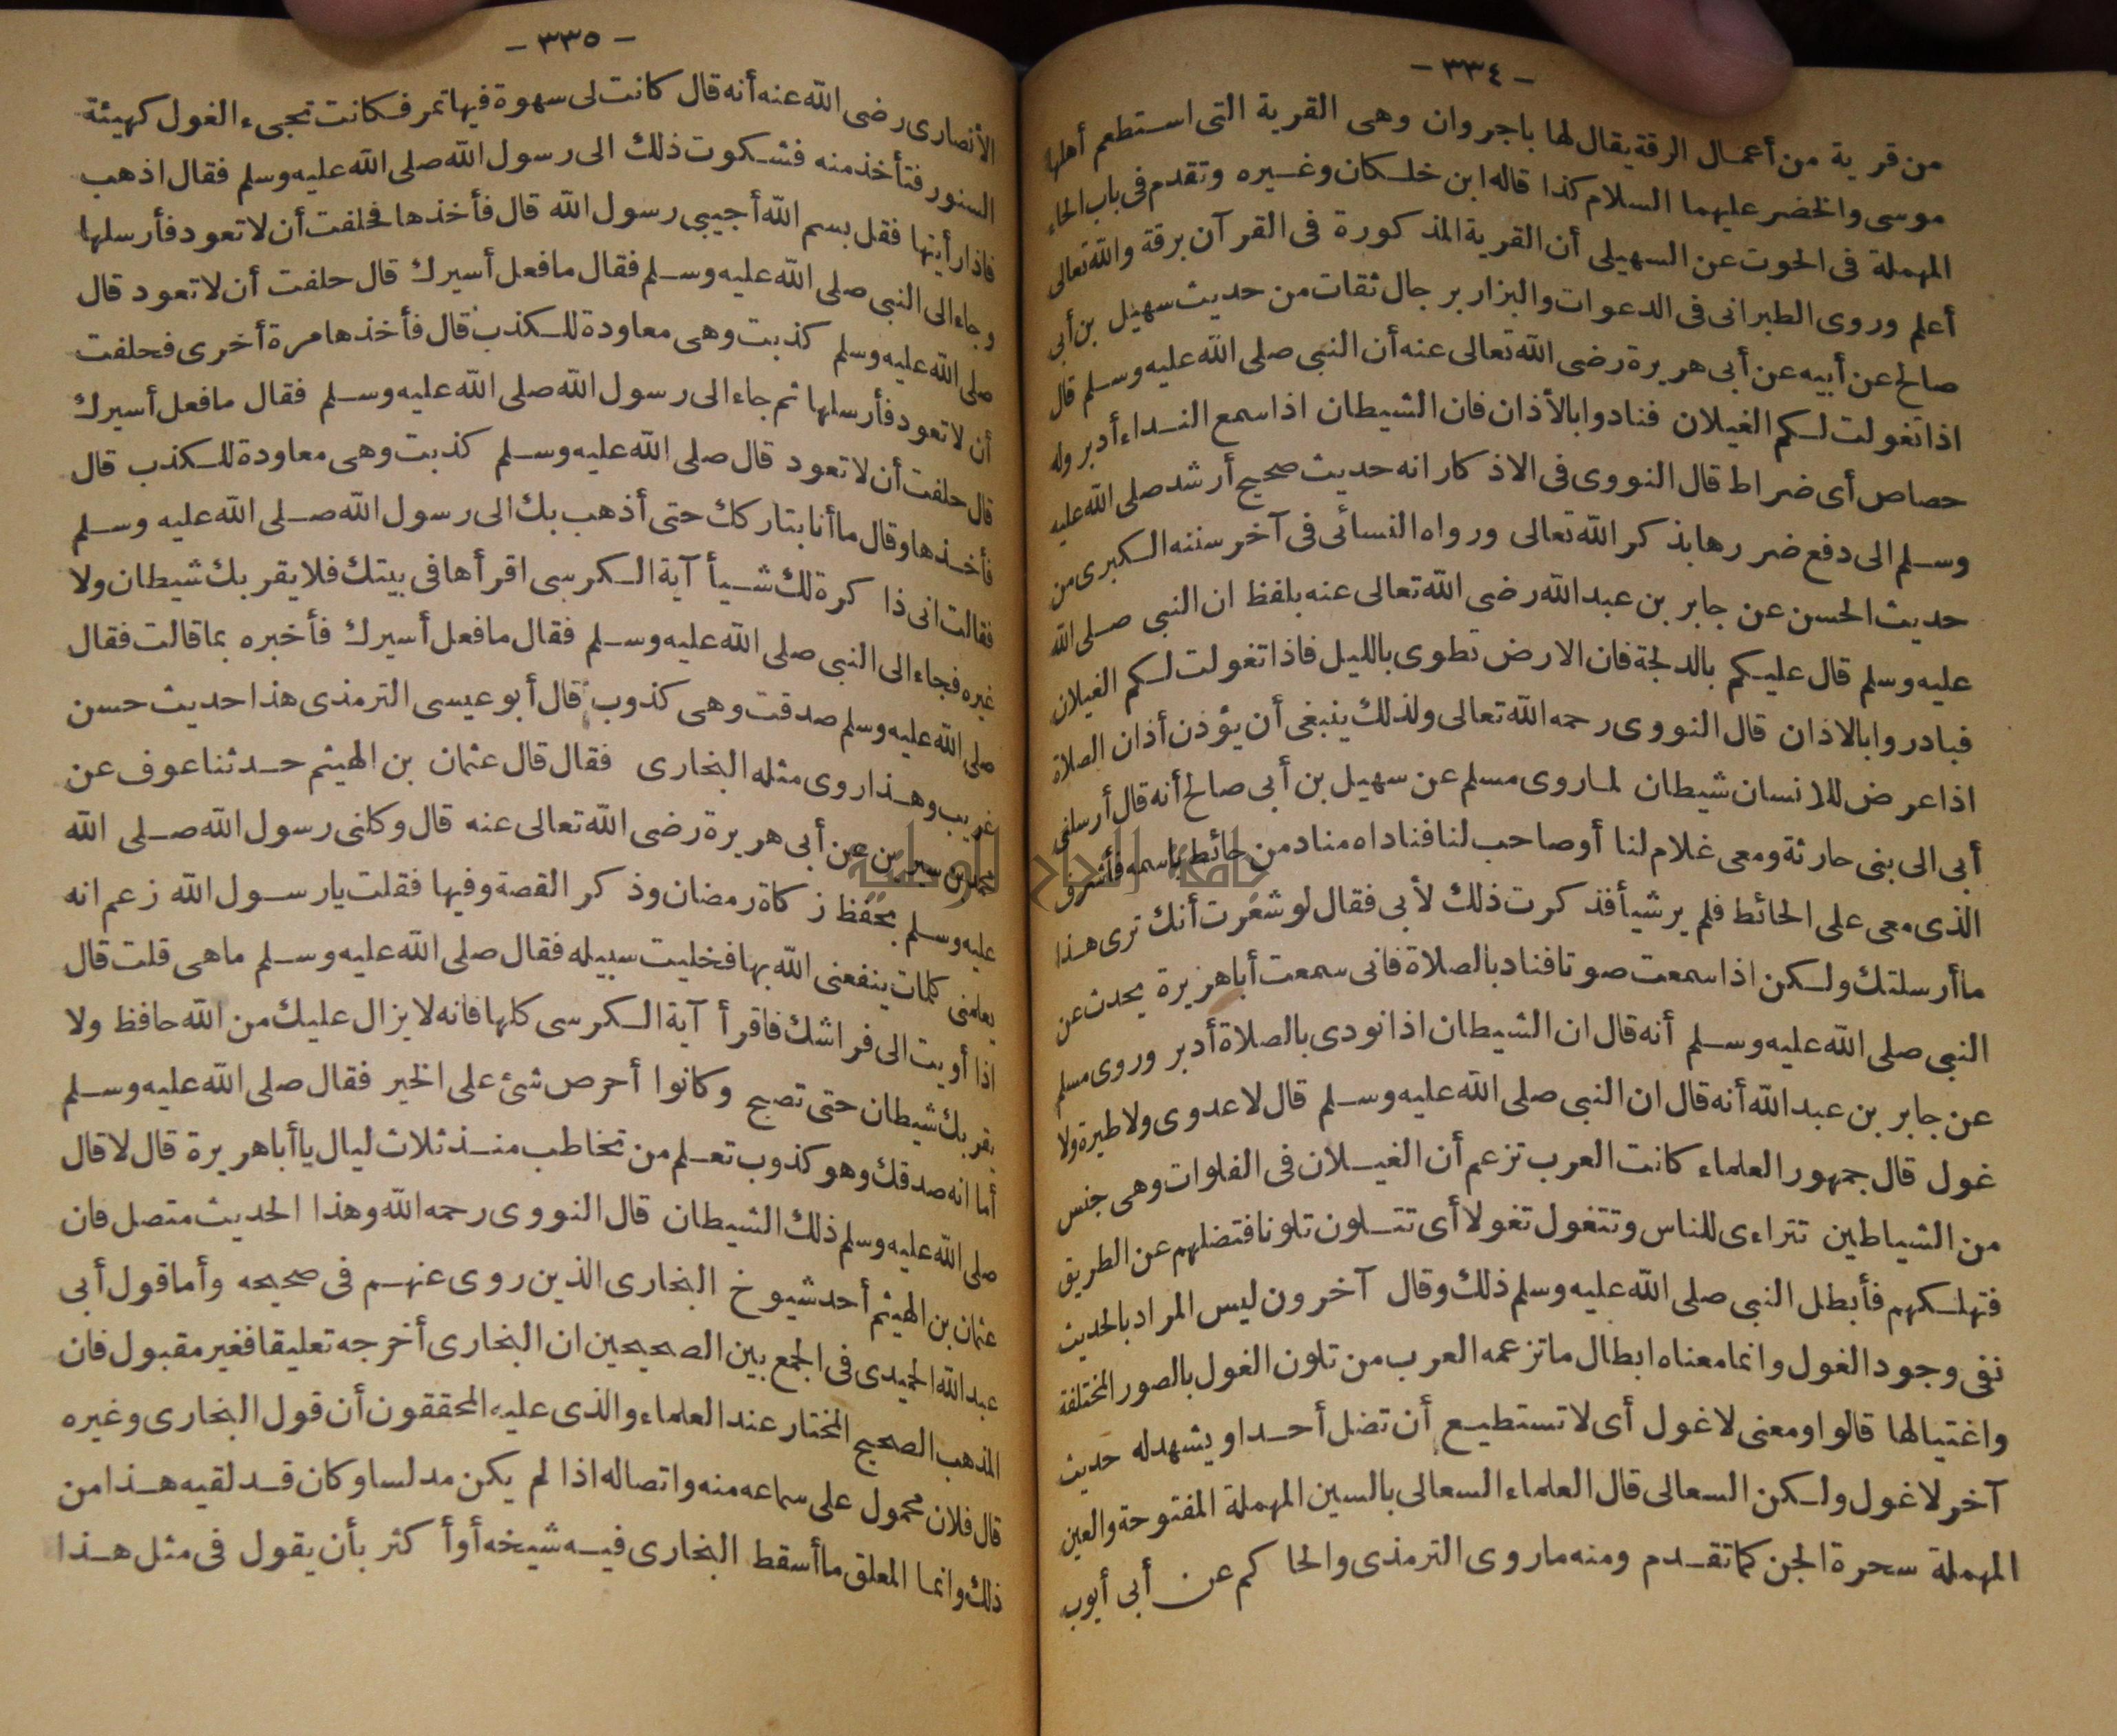 - ٣٣٤ -
من قرية من أعمال الرقة يقال لها باجروان وهى القرية التى استطعم أهلها
موسى والخضر عليهما السلام كذا قاله ابن خلكان وغيره وتقدم فى باب الحاء
المهملة فى الحوت عن السهيلى أن القرية المذكورة فى القرآن برقة والله تعالى
أعلم وروى الطبرانى فى الدعوات والبزار برجال ثقات من حديث سهيل بن أبى
صالح عن أبيه عن أبى هريرة رضى الله تعالى عنه أن النبى صلى الله عليه وسلم قال
اذا تغولت لكم الغيلان فنادوا بالأذان فان الشيطان اذا سمع النداء أدبر وله
حصاص أى ضراط قال النووى فى الاذكار انه حديث صحيح أرشد صلى الله عليه
وسلم الى دفع ضررها بذكر الله تعالى ورواه النسائى فى آخر سننه الكبرى من
حديث الحسن عن جابر بن عبد الله رضى الله تعالى عنه بلفظ ان النبى صلى الله
عليه وسلم قال عليكم بالدلجة فان الارض تطوى بالليل فاذا تغولت لكم الغيلان
فبادروا بالاذان قال النووى رحمه الله تعالى ولذلك ينبغى أن يؤذن أذان الصلاة
اذا عرض للانسان شيطان لما روى مسلم عن سهيل بن أبى صالح أنه قال أرسلنى
أبى الى بنى حارثة ومعى غلام لنا أو صاحب لنا فناداه مناد من حائط باسمه فأشرف
الذى معى على الحائط فلم ير شيأ فذكرت ذلك لأبى فقال لو شعرت أنك ترى هذا
ما أرسلتك ولكن اذا سمعت صوتا فناد بالصلاة فانى سمعت أبا هريرة يحدث عن
النبى صلى الله عليه وسلم أنه قال ان الشيطان اذا نودى بالصلاة أدبر وروى مسلم
عن جابر بن عبد الله أنه قال ان النبى صلى الله عليه وسلم قال لا عدوى ولا طيرة ولا
غول قال جمهور العلماء كانت العرب تزعم أن الغيلان فى الفلوات وهى جنس
من الشياطين تتراءى للناس وتتغول تغولا أى تتلون تلونا فتضلهم عن الطريق
فتهلكهم فأبطل النبى صلى الله عليه وسلم ذلك وقال آخرون ليس المراد بالحديث
نفى وجود الغول وانما معناه ابطال ما تزعمه العرب من تلون الغول بالصور المختلفة
واغتيالها قالوا ومعنى لا غول أى لا تستطيع أن تضل أحدا ويشهد له حديث
آخر لا غول ولكن السعالى قال العلماء السعالى بالسين المهملة المفتوحة والعين
المهملة سحرة الجن كما تقدم ومنه ما روى الترمذى والحاكم عن أبى أيوب
- ٣٣٥ -
الأنصارى رضى الله عنه أنه قال كانت لى سهوة فيها تمر فكانت تجىء الغول كهيئة
السنور فتأخذ منه فشكوت ذلك الى رسول الله صلى الله عليه وسلم فقال اذهب
فاذا رأيتها فقل بسم الله أجيبى رسول الله قال فأخذها فحلفت أن لا تعود فأرسلها
وجاء الى النبى صلى الله عليه وسلم فقال ما فعل أسيرك قال حلفت أن لا تعود قال
صلى الله عليه وسلم كذبت وهى معاودة للكذب قال فأخذها مرة أخرى فحلفت
أن لا تعود فأرسلها ثم جاء الى رسول الله صلى الله عليه وسلم فقال ما فعل أسيرك
قال حلفت أن لا تعود قال صلى الله عليه وسلم كذبت وهى معاودة للكذب قال
فأخذها وقال ما أنا بتاركك حتى أذهب بك الى رسول الله صلى الله عليه وسلم
فقالت انى ذاكرة لك شيأ آية الكرسى اقرأها فى بيتك فلا يقربك شيطان ولا
غيره فجاء الى النبى صلى الله عليه وسلم فقال ما فعل أسيرك فأخبره بما قالت فقال
صلى الله عليه وسلم صدقت وهى كذوب قال أبو عيسى الترمذى هذا حديث حسن
غريب وهذا روى مثله البخارى فقال قال عثمان بن الهيثم حدثنا عوف عن
محمد بن سيرين عن أبى هريرة رضى الله تعالى عنه قال وكلنى رسول الله صلى الله
عليه وسلم بحفظ زكاة رمضان وذكر القصة وفيها فقلت يا رسول الله زعم انه
يعلمنى كلمات ينفعنى الله بها فخليت سبيله فقال صلى الله عليه وسلم ما هى قلت قال
اذا أويت الى فراشك فاقرأ آية الكرسى كلها فانه لا يزال عليك من الله حافظ ولا
يقربك شيطان حتى تصبح وكانوا أحرص شئ على الخير فقال صلى الله عليه وسلم
أما انه صدقك وهو كذوب تعلم من تخاطب منذ ثلاث ليال يا أبا هريرة قال لا قال
صلى الله عليه وسلم ذلك الشيطان قال النووى رحمه الله وهذا الحديث متصل فان
عثمان بن الهيثم أحد شيوخ البخارى الذين روى عنهم فى صحيحه وأما قول أبى
عبد الله الحميدى فى الجمع بين الصحيحين ان البخارى أخرجه تعليقا فغير مقبول فان
المذهب الصحيح المختار عند العلماء والذى عليه المحققون أن قول البخارى وغيره
قال فلان محمول على سماعه منه واتصاله اذا لم يكن مدلسا وكان قد لقيه هذا من
ذلك وانما المعلق ما أسقط البخارى فيه شيخه أو أكثر بأن يقول فى مثل هذا
جامعة النجاح الوطنية